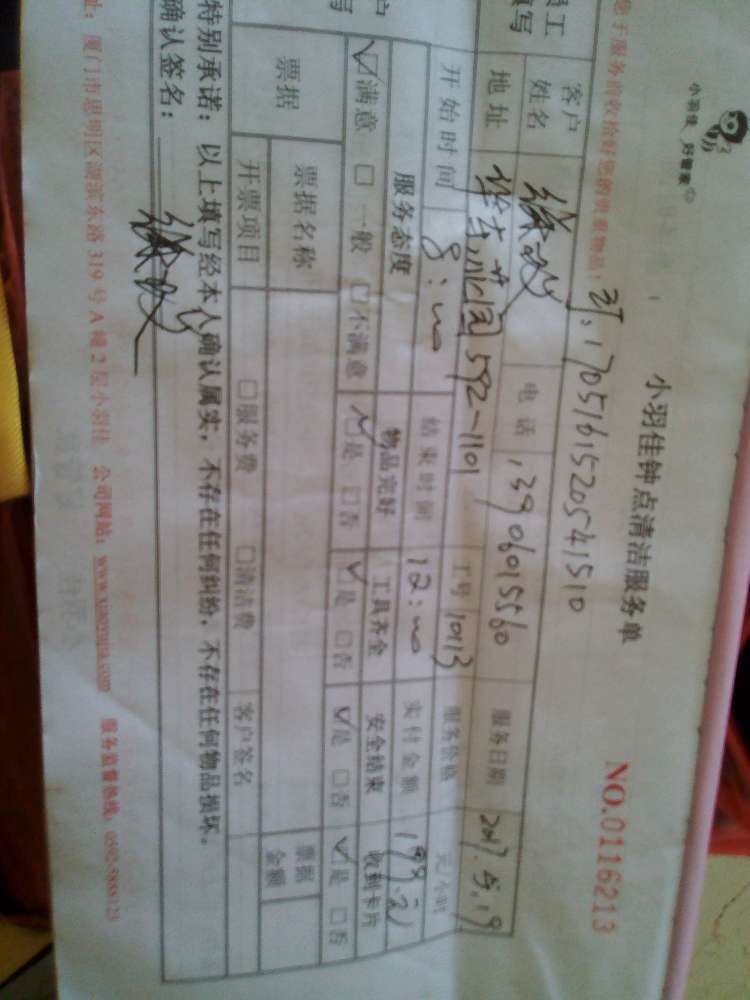 小羽佳 好管家
小羽佳钟点清洁服务单
NO.0116213
您于服务前收拾好您的贵重物品:
1705161520541510
员工
填写
客户
姓名
电话 13906015560
服务日期 2017.5.19
地址
592-1101
工号 10113
服务价格
元/小时
开始时间 8:00
结束时间 12:00
实付金额
户
写
服务态度
物品完好
工具齐全
安全结束
收到卡片
☑满意 □一般 □不满意
☑是 □否
☑是 □否
☑是 □否
☑是 □否
票据
票据名称
开票项目
□服务费 □清洁费
客户签名
票据
金额
特别承诺:以上填写经本人确认属实,不存在任何纠纷,不存在任何物品损坏。
确认签名:
址:厦门市思明区湖滨东路319号A幢2层小羽佳 公司网站:www.xiaoyujia.com 服务监督热线:0592-5888123